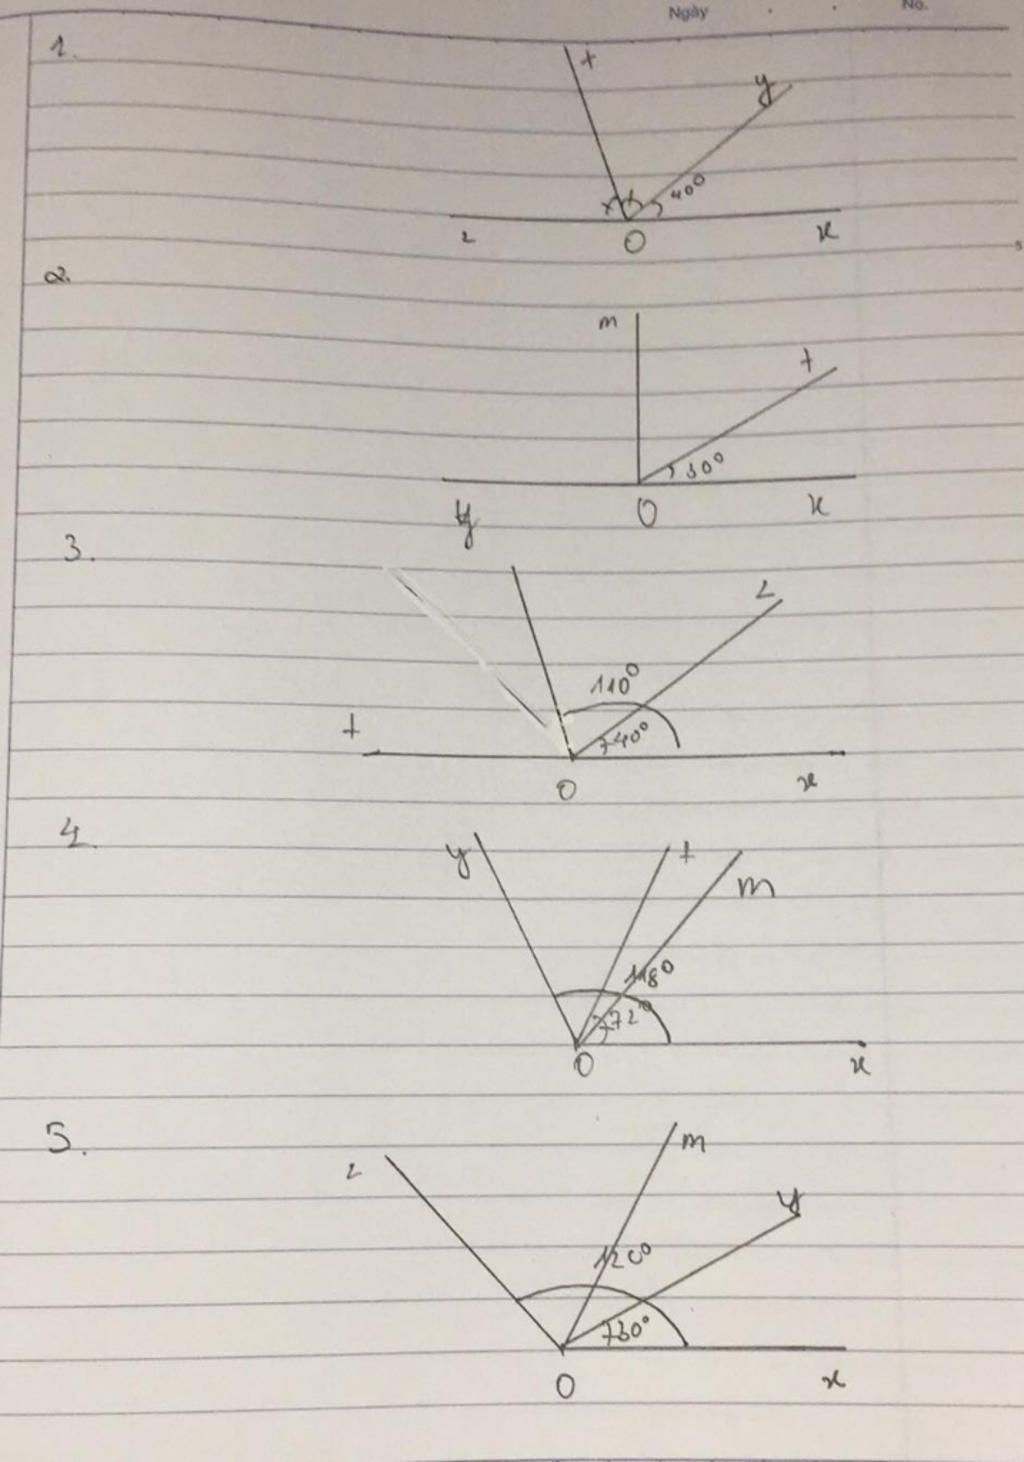 Ngày No.
1.
t
y
40°
z O x
2.
m
t
30°
y O x
3.
z
110°
t 40°
O x
4.
y t
m
118°
72°
O x
5.
z m
y
120°
30°
O x